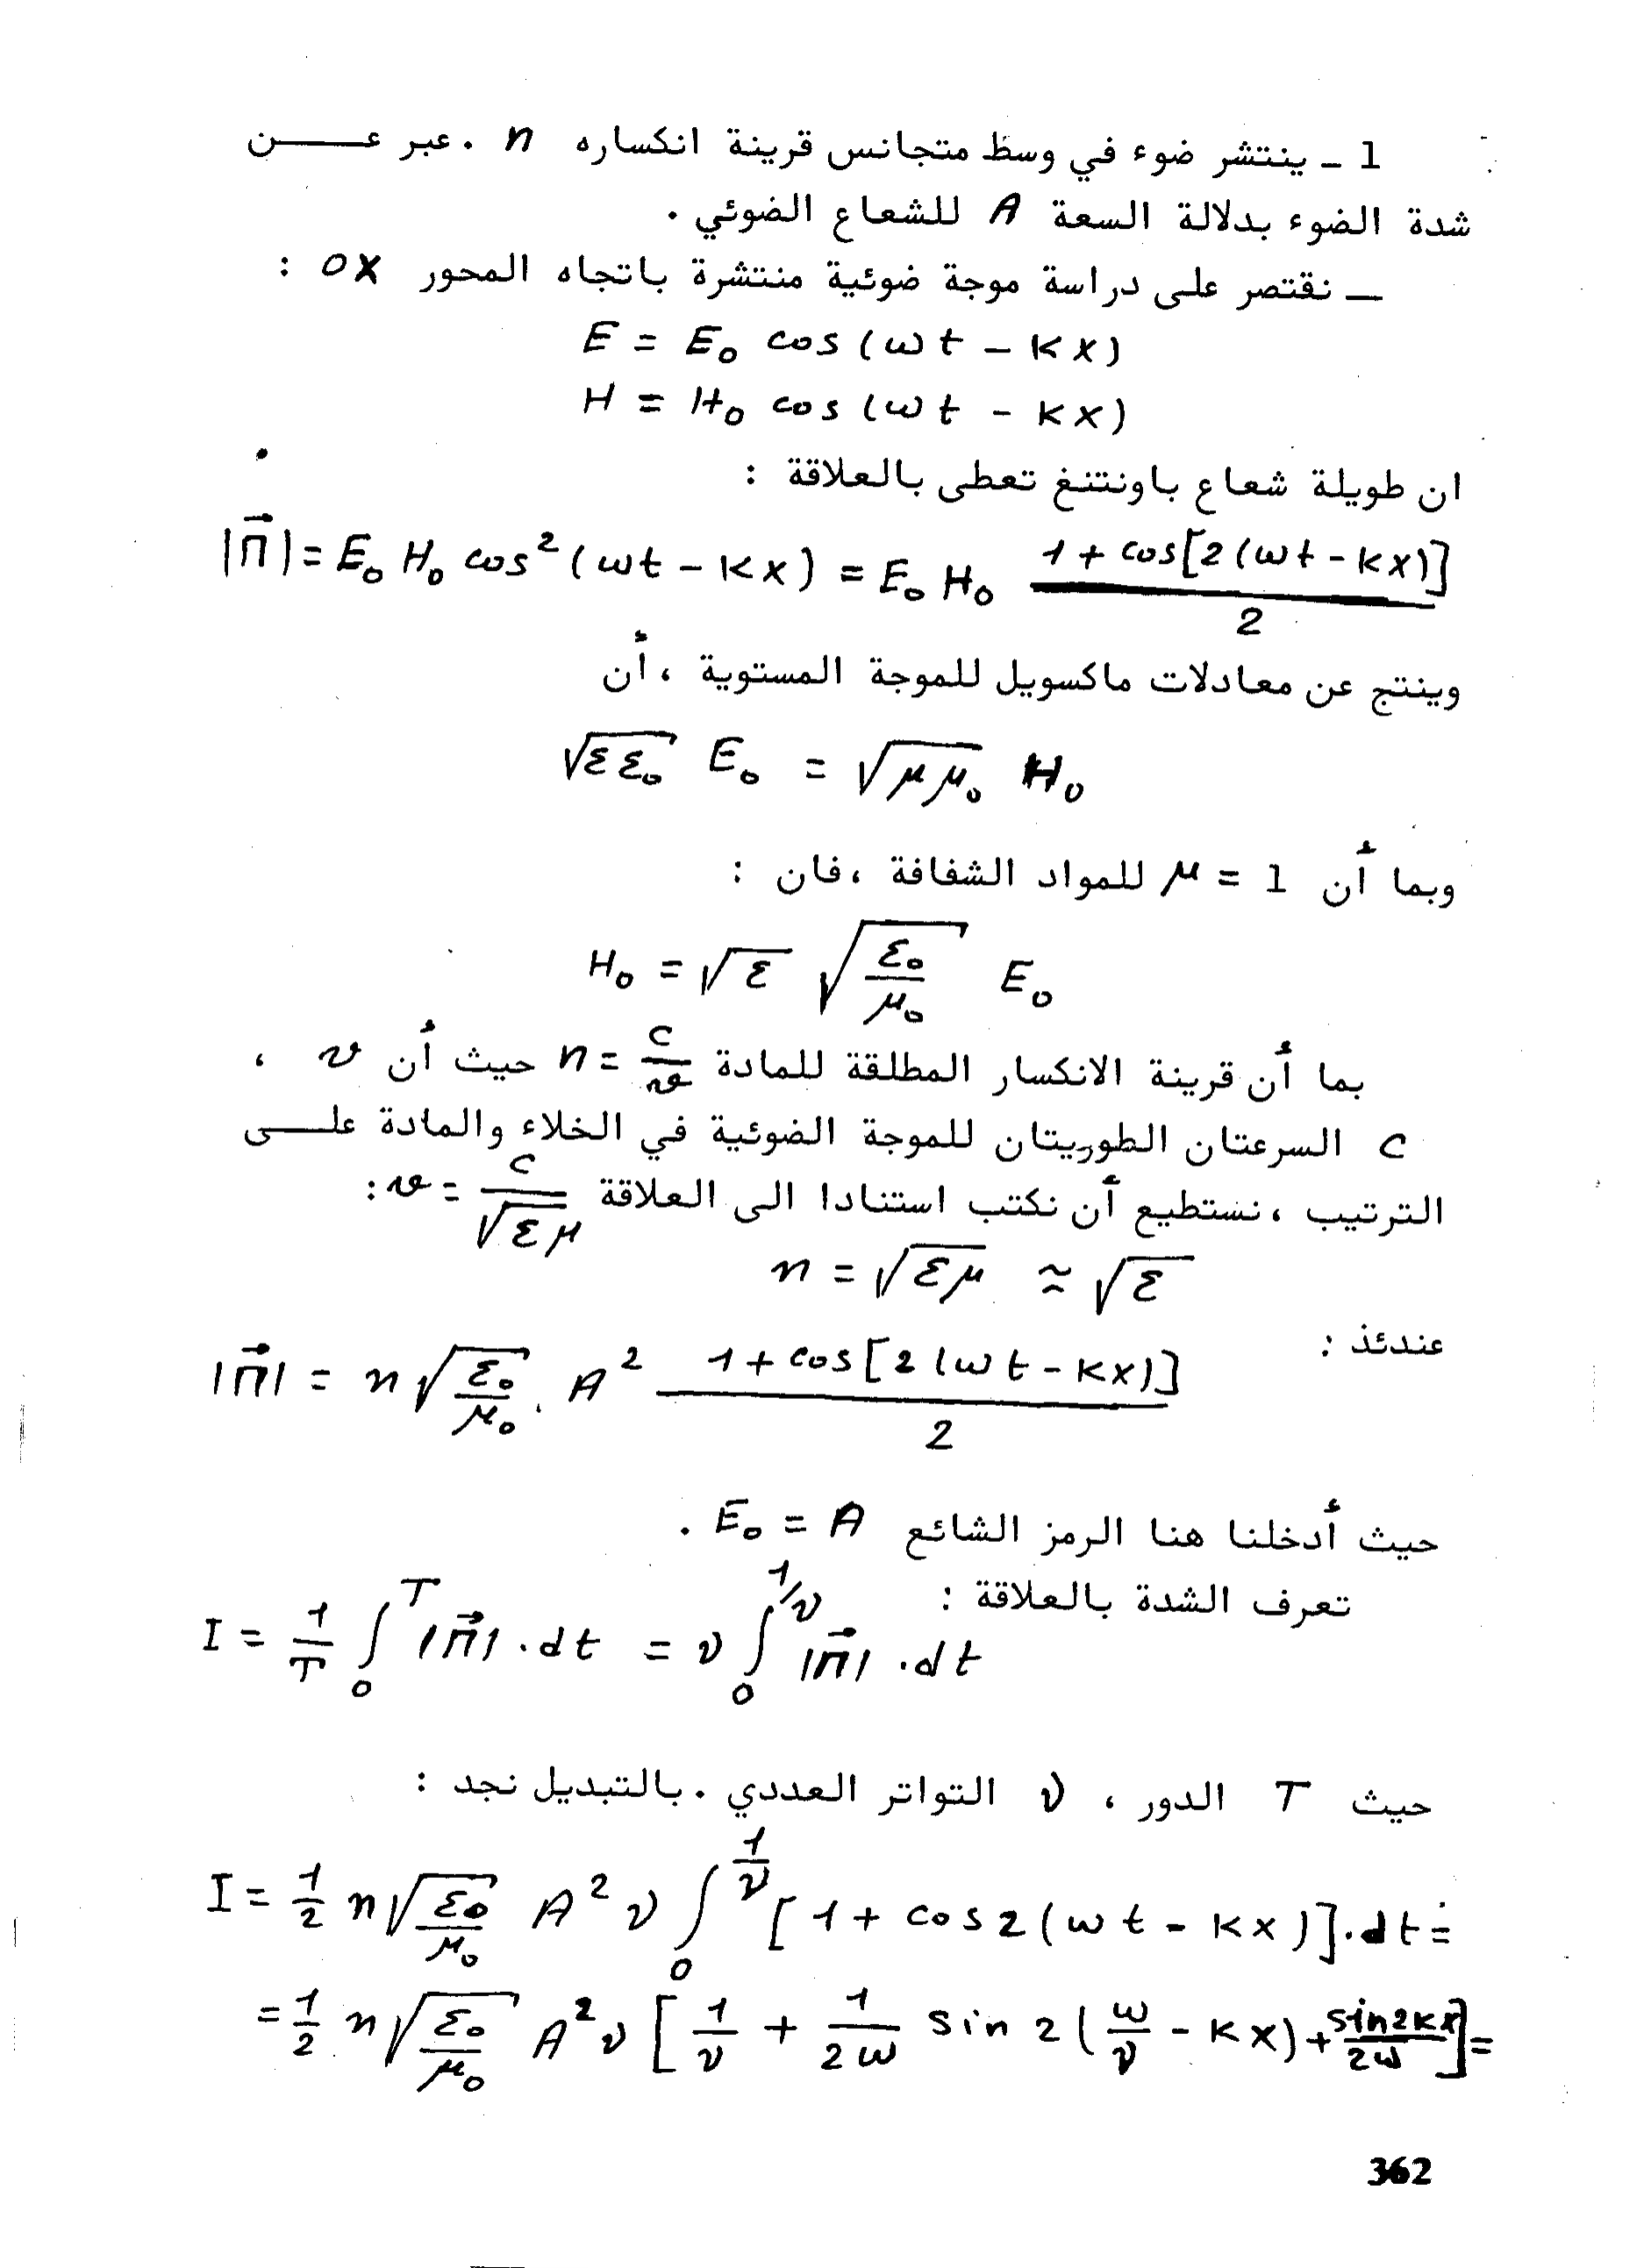 1 ـ ينتشر ضوء في وسط متجانس قرينة انكساره n . عبر عــــن
شدة الضوء بدلالة السعة A للشعاع الضوئي .
ــ نقتصر على دراسة موجة ضوئية منتشرة باتجاه المحور OX :
E = E₀ cos (ωt − kx)
H = H₀ cos (ωt − kx)
ان طويلة شعاع باونتنغ تعطى بالعلاقة :
|Π⃗| = E₀ H₀ cos² (ωt − kx) = E₀ H₀ (1 + cos[2(ωt − kx)])/2
وينتج عن معادلات ماكسويل للموجة المستوية ، أن
√(εε₀) E₀ = √(μμ₀) H₀
وبما أن μ = 1 للمواد الشفافة ،فان :
H₀ = √ε √(ε₀/μ₀) E₀
بما أن قرينة الانكسار المطلقة للمادة n = c/v حيث أن v ،
c السرعتان الطوريتان للموجة الضوئية في الخلاء والمادة علــى
الترتيب ، نستطيع أن نكتب استنادا الى العلاقة v = c/√(εμ) :
n = √(εμ) ≈ √ε
عندئذ :
|Π⃗| = n √(ε₀/μ₀) . A² (1 + cos[2(ωt − kx)])/2
حيث أدخلنا هنا الرمز الشائع E₀ = A .
تعرف الشدة بالعلاقة :
I = 1/T ∫₀ᵀ |Π⃗| . dt = ν ∫₀^(1/ν) |Π⃗| . dt
حيث T الدور ، ν التواتر العددي . بالتبديل نجد :
I = 1/2 n √(ε₀/μ₀) A² ν ∫₀^(1/ν) [1 + cos 2(ωt − kx)] . dt =
= 1/2 n √(ε₀/μ₀) A² ν [1/ν + 1/2ω sin 2(ω/ν − kx) + sin2kx/2ω] =
362